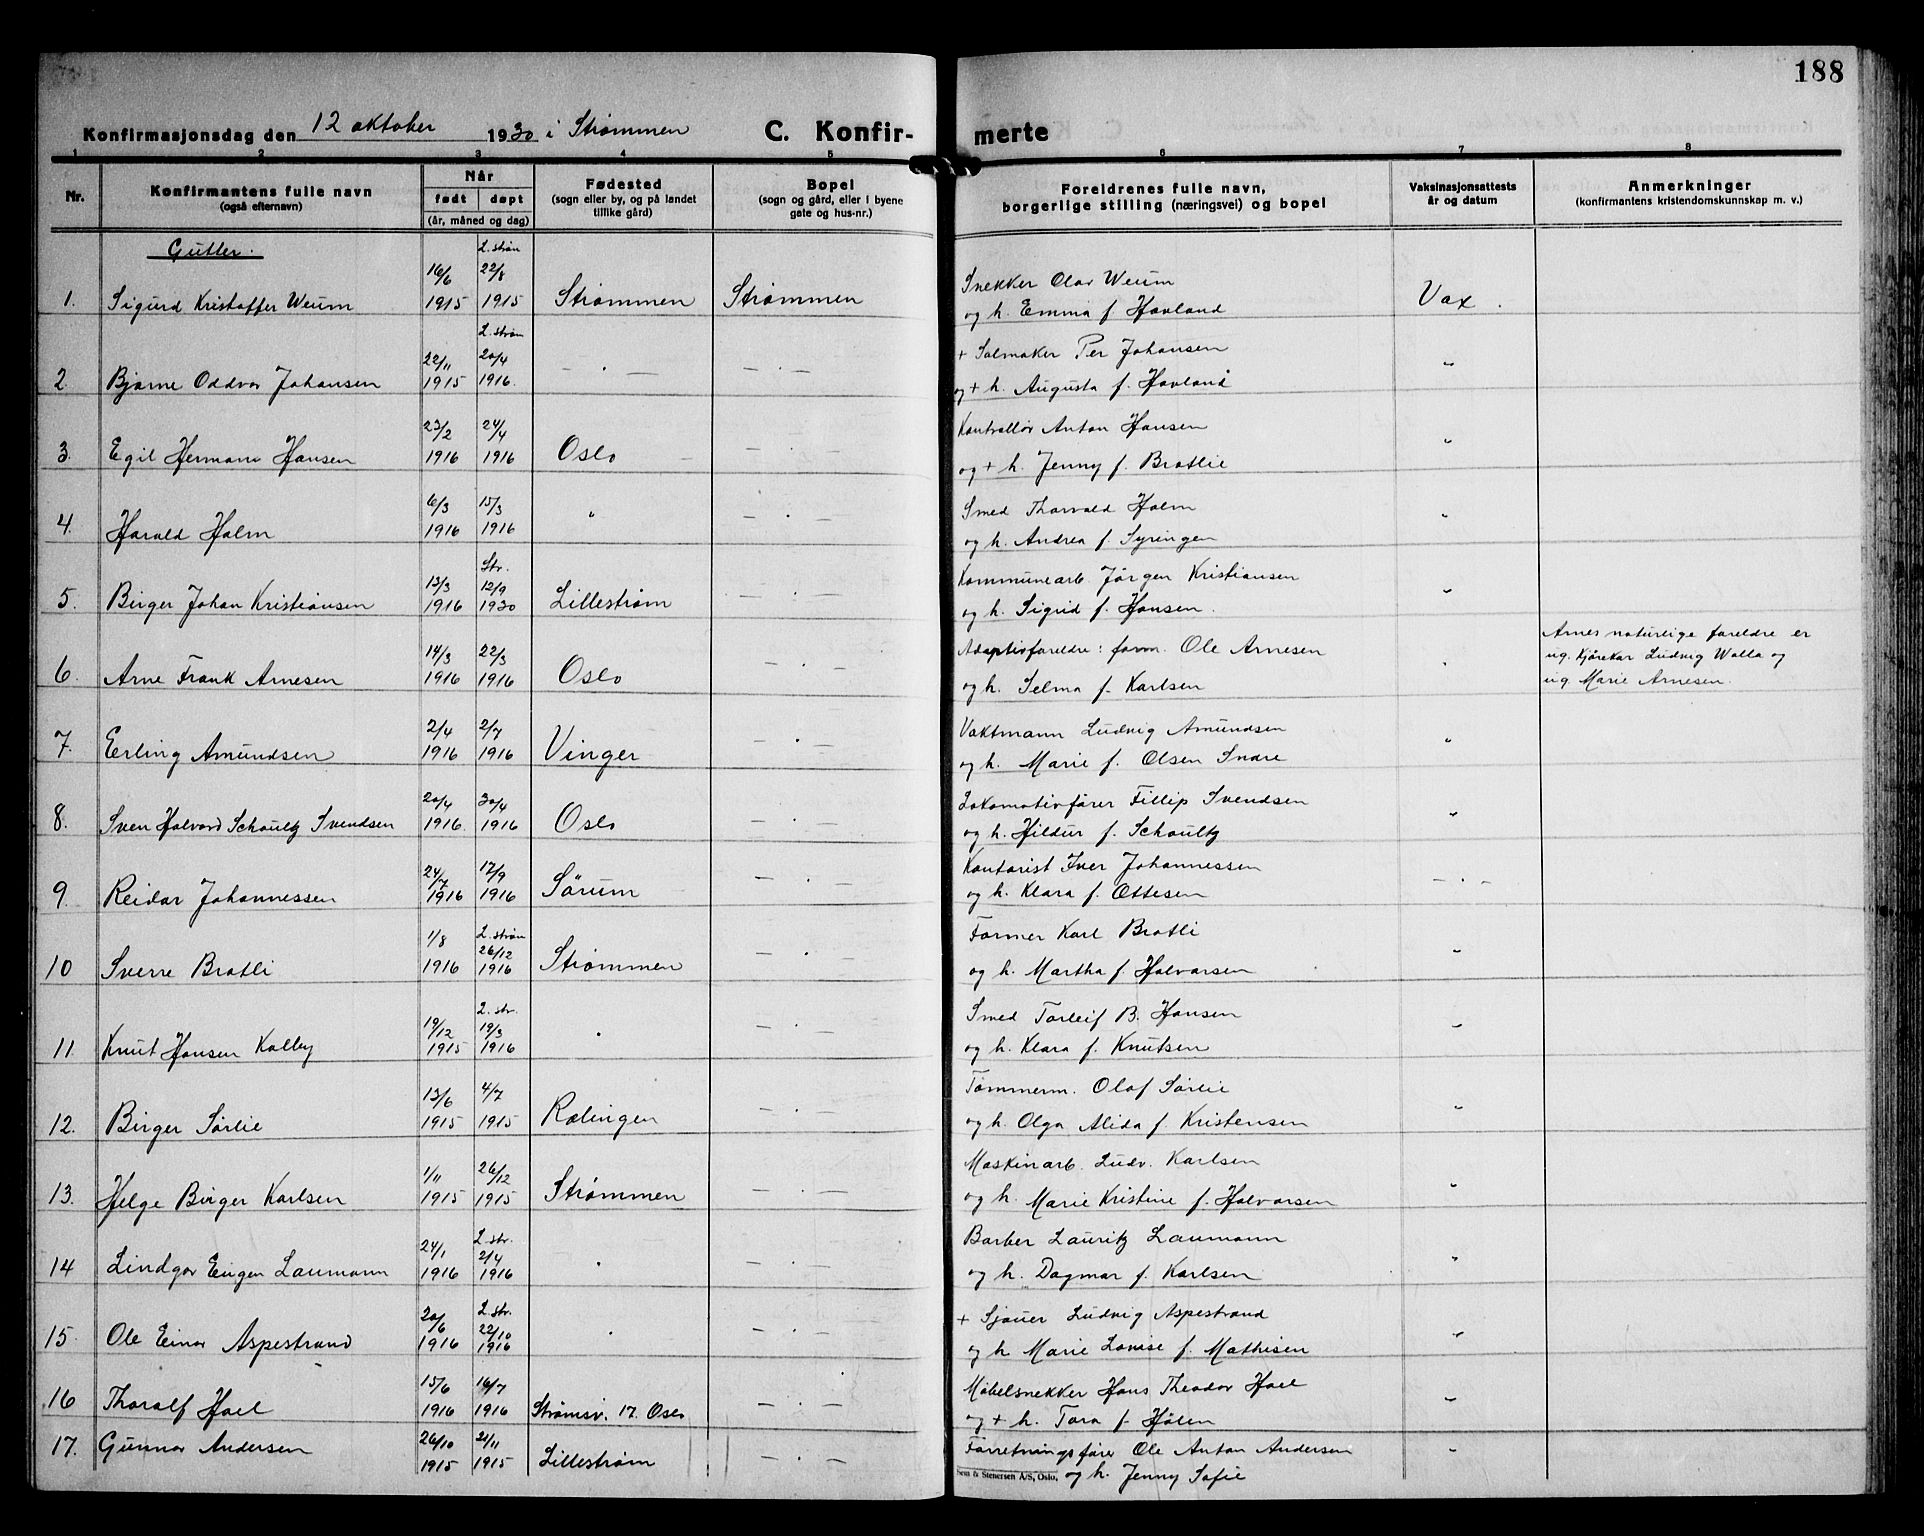 188
Konfirmasjonsdag den 12 oktober 1930 i Strømmen C. Konfir-merte
1 2 3 4 5 6 7 8
Nr. Konfirmantens fulle navn (også efternavn) Når født døpt (år, måned og dag) Fødested (sogn eller by, og på landet tillike gård) Bopel (sogn og gård, eller i byene gate og hus-nr.) Foreldrenes fulle navn, borgerlige stilling (næringsvei) og bopel Vaksinasjonsattests år og datum Anmerkninger (konfirmantens kristendomskunnskap m. v.)
Gutter.
L. strøm
16/6 22/8 Snekker Olav Weum
1. Sigurd Kristoffer Weum 1915 1915 Strømmen Strømmen og h. Emma f. Hovland Vax.
L. strøm
22/11 20/4 + Salmaker Per Johansen
2. Bjarne Oddvar Johansen 1915 1916. — . — — . — og + h. Augusta f. Hovland "
23/2 24/4 Kontrollør Anton Hansen
3. Egil Hermann Hansen 1916 1916 Oslo — . — og + h. Jenny f. Bratlie "
6/3 15/3 Smed Thorvald Holm
4. Harald Holm 1916 1916 " — . — og h. Andrea f. Syringen "
Str.
13/3 12/9 Kommunearb. Jørgen Kristiansen
5. Birger Johan Kristiansen 1916 1930 Lillestrøm — . — og h. Sigrid f. Hansen. "
14/3 22/3 Adoptivforeldre: form. Ole Arnesen Arnes naturlige foreldre er
ug. kjørekar Ludvig Walla og
6. Arne Frank Arnesen 1916 1916 Oslo — . — og h. Selma f. Karlsen " ug. Marie Arnesen.
2/4 2/7 Vaktmann Ludvig Amundsen
7. Erling Amundsen 1916 1916 Vinger — . — og h. Marie f. Olsen Snare "
20/4 30/4 Lokomotivfører Fillip Svendsen
8. Sven Halvard Schoultz Svendsen 1916. 1916 Oslo — . — og h. Hildur f. Schoultz "
24/7 17/9 Kontorist Iver Johannessen
9. Reidar Johannessen 1916 1916 Sørum — . — og h. Klara f. Ottesen — . —
L. strøm
1/8 26/12 Former Karl Bratli
10 Sverre Bratli 1916 1916 Strømmen — . — og h. Martha f. Halvorsen "
L. str.
19/12 19/3 Smed Torleif B. Hansen
11. Knut Hansen Kolby 1915 1916 " — . — og h. Klara f. Knutsen "
13/6 4/7 Tømmerm. Olaf Sørlie
12. Birger Sørlie 1915 1915 Rælingen — . — og h. Olga Alida f. Kristensen "
1/11 26/12 Maskinarb. Ludv. Karlsen
13. Helge Birger Karlsen 1915 1915 Strømmen — . — og h. Marie Kristine f. Halvorsen "
L. str.
24/1 2/4 Barber Lauritz Laumann
14 Lindgar Eugen Laumann 1916 1916 " — . — og h. Dagmar f. Karlsen "
L. str.
20/6 22/10 + Sjauer Ludvig Aspestrand
15. Ole Einar Aspestrand 1916 1916 " — . — og h Marie Lovise f. Mathisen "
15/6 16/7 Møbelsnekker Hans Theodor Hoel
16 Thoralf Hoel 1916 1916 Strømsv. 17. Oslo — . — og + h. Tora f. Hølen "
17. Gunnar Andersen 26/10 21/11 Forretningsfører Ole Anton Andersen "
1915 1915 Lillestrøm — . — og h. Jenny Sofie
Sem & Stenersen A/S, Oslo.